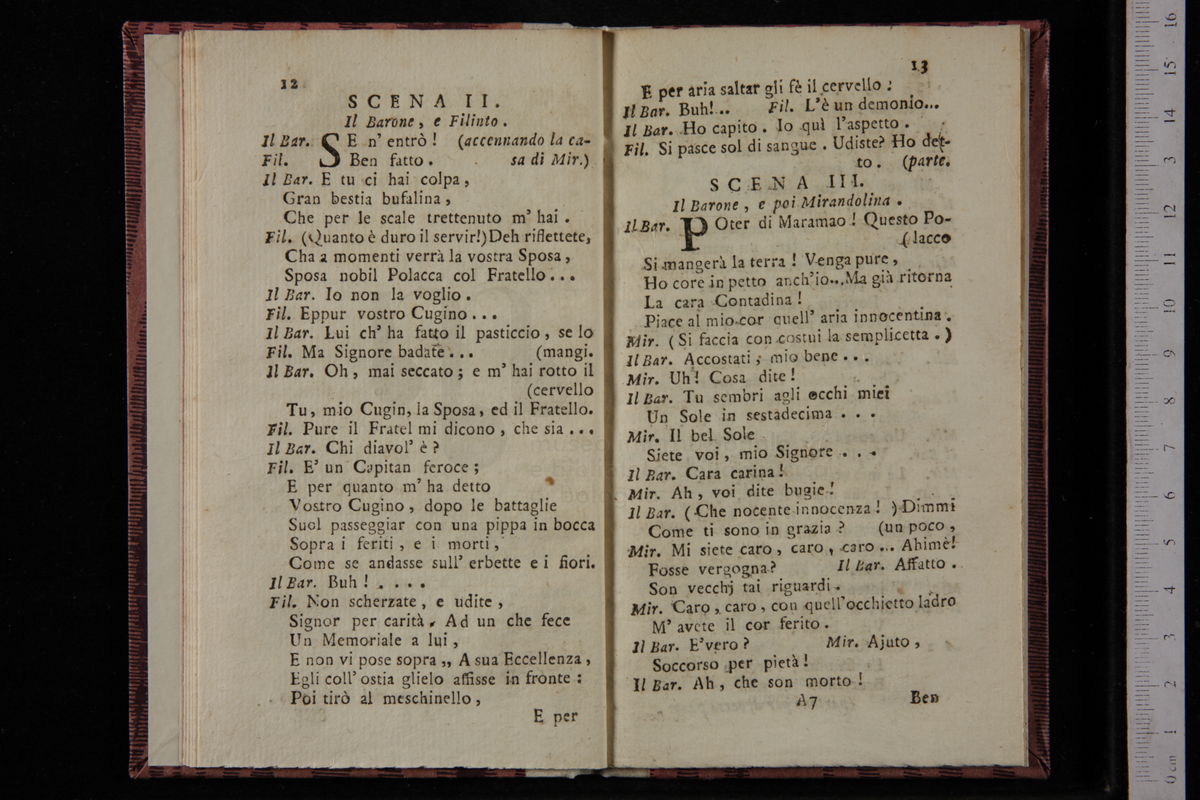 12
SCENA II.
Il Barone, e Filinto.
Il Bar. SE n' entrò! (accennando la ca-
Fil. Ben fatto. sa di Mir.)
Il Bar. E tu ci hai colpa,
Gran bestia bufalina,
Che per le scale trettenuto m' hai.
Fil. (Quanto è duro il servir!) Deh riflettete,
Cha a momenti verrà la vostra Sposa,
Sposa nobil Polacca col Fratello...
Il Bar. Io non la voglio.
Fil. Eppur vostro Cugino...
Il Bar. Lui ch' ha fatto il pasticcio, se lo
Fil. Ma Signore badate... (mangi.
Il Bar. Oh, mai seccato; e m' hai rotto il
(cervello
Tu, mio Cugin, la Sposa, ed il Fratello.
Fil. Pure il Fratel mi dicono, che sia...
Il Bar. Chi diavol' è?
Fil. E' un Capitan feroce;
E per quanto m' ha detto
Vostro Cugino, dopo le battaglie
Suol passeggiar con una pippa in bocca
Sopra i feriti, e i morti,
Come se andasse sull' erbette e i fiori.
Il Bar. Buh! ....
Fil. Non scherzate, e udite,
Signor per carità. Ad un che fece
Un Memoriale a lui,
E non vi pose sopra ,, A sua Eccellenza,
Egli coll' ostia glielo affisse in fronte:
Poi tirò al meschinello,
E per
13
E per aria saltar gli fè il cervello:
Il Bar. Buh!... Fil. L'è un demonio...
Il Bar. Ho capito. Io quì l'aspetto.
Fil. Si pasce sol di sangue. Udiste? Ho det-
to. (parte.
SCENA III.
Il Barone, e poi Mirandolina.
Il Bar. POter di Maramao! Questo Po-
(lacco
Si mangerà la terra! Venga pure,
Ho core in petto anch'io... Ma già ritorna
La cara Contadina!
Piace al mio cor quell' aria innocentina.
Mir. (Si faccia con costui la semplicetta.)
Il Bar. Accostati, mio bene...
Mir. Uh! Cosa dite!
Il Bar. Tu sembri agli occhi miei
Un Sole in sestadecima...
Mir. Il bel Sole
Siete voi, mio Signore...
Il Bar. Cara carina!
Mir. Ah, voi dite bugie!
Il Bar. (Che nocente innocenza!) Dimmi
Come ti sono in grazia? (un poco,
Mir. Mi siete caro, caro, caro... Ahimè!
Fosse vergogna? Il Bar. Affatto.
Son vecchj tai riguardi.
Mir. Caro, caro, con quell'occhietto ladro
M' avete il cor ferito.
Il Bar. E' vero? Mir. Ajuto,
Soccorso per pietà!
Il Bar. Ah, che son morto!
A7 Ben
0 cm 1 2 3 4 5 6 7 8 9 10 11 12 13 14 15 16